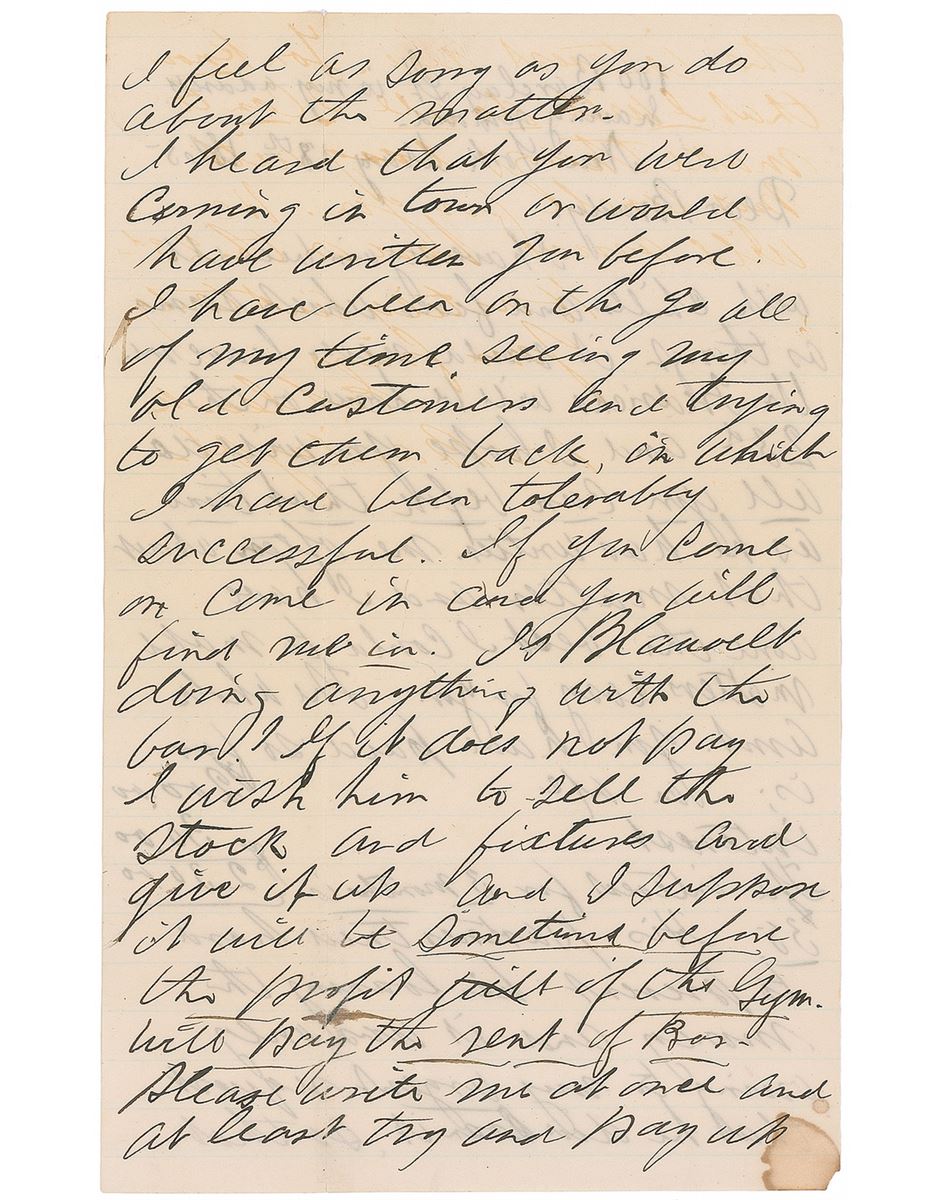 I feel as sorry as you do
about the matter.
I heard that you were
Coming in town or would
have written you before.
I have been on the go all
of my time seeing my
old Customers and trying
to get them back, in which
I have been tolerably
successful. If you come
on Come in and you will
find me in. Is Blauvelt
doing anything with the
bar? If it does not pay
I wish him to sell the
stock and fixtures and
give it up and I suppose
it will be sometime before
the profit of the Gym.
will pay the rent of Bar.
Please write me at once and
at least try and pay up